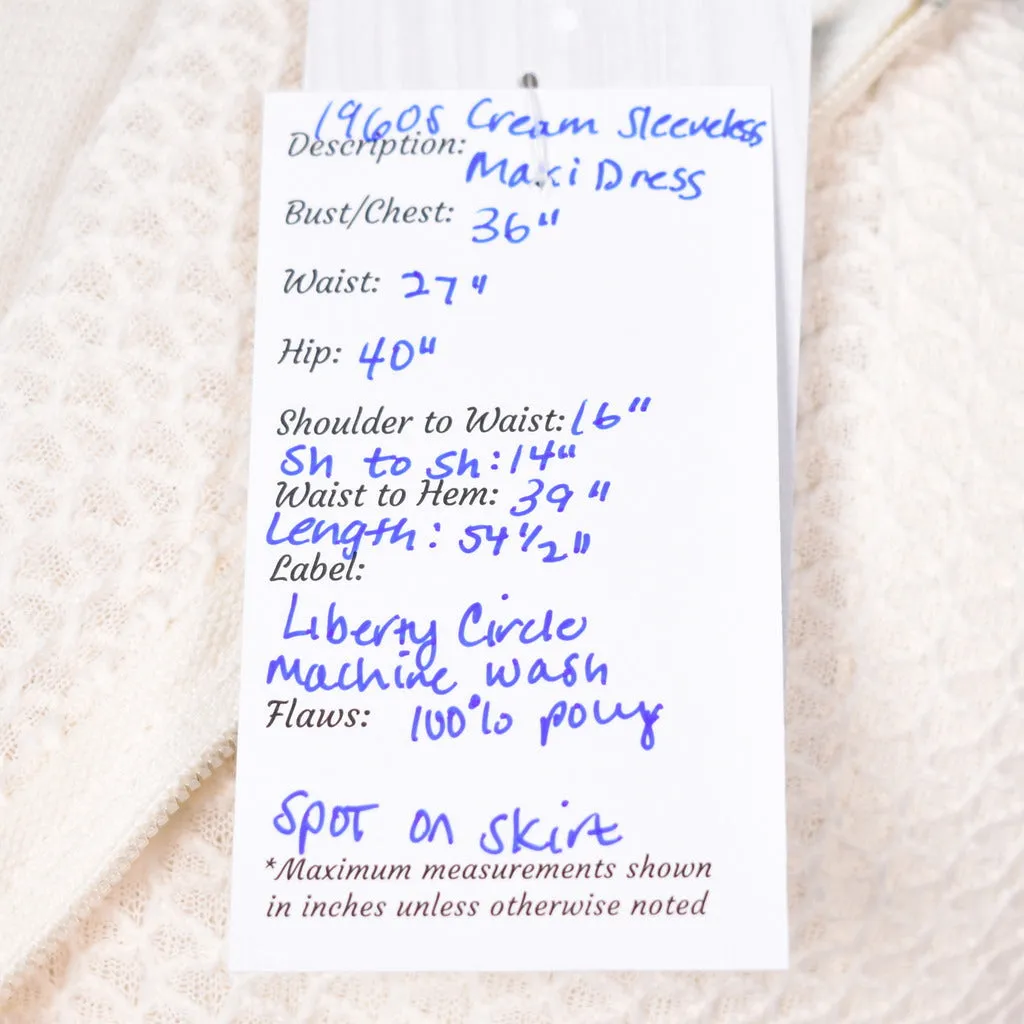 1960s Cream Sleeveless
Description:
Maxi Dress
Bust/Chest: 36"
Waist: 27"
Hip: 40"
Shoulder to Waist: 16"
Sh to Sh: 14"
Waist to Hem: 39"
Length: 54 1/2"
Label:
Liberty Circle
Machine wash
Flaws: 100%
Spot on skirt
*Maximum measurements shown
in inches unless otherwise noted